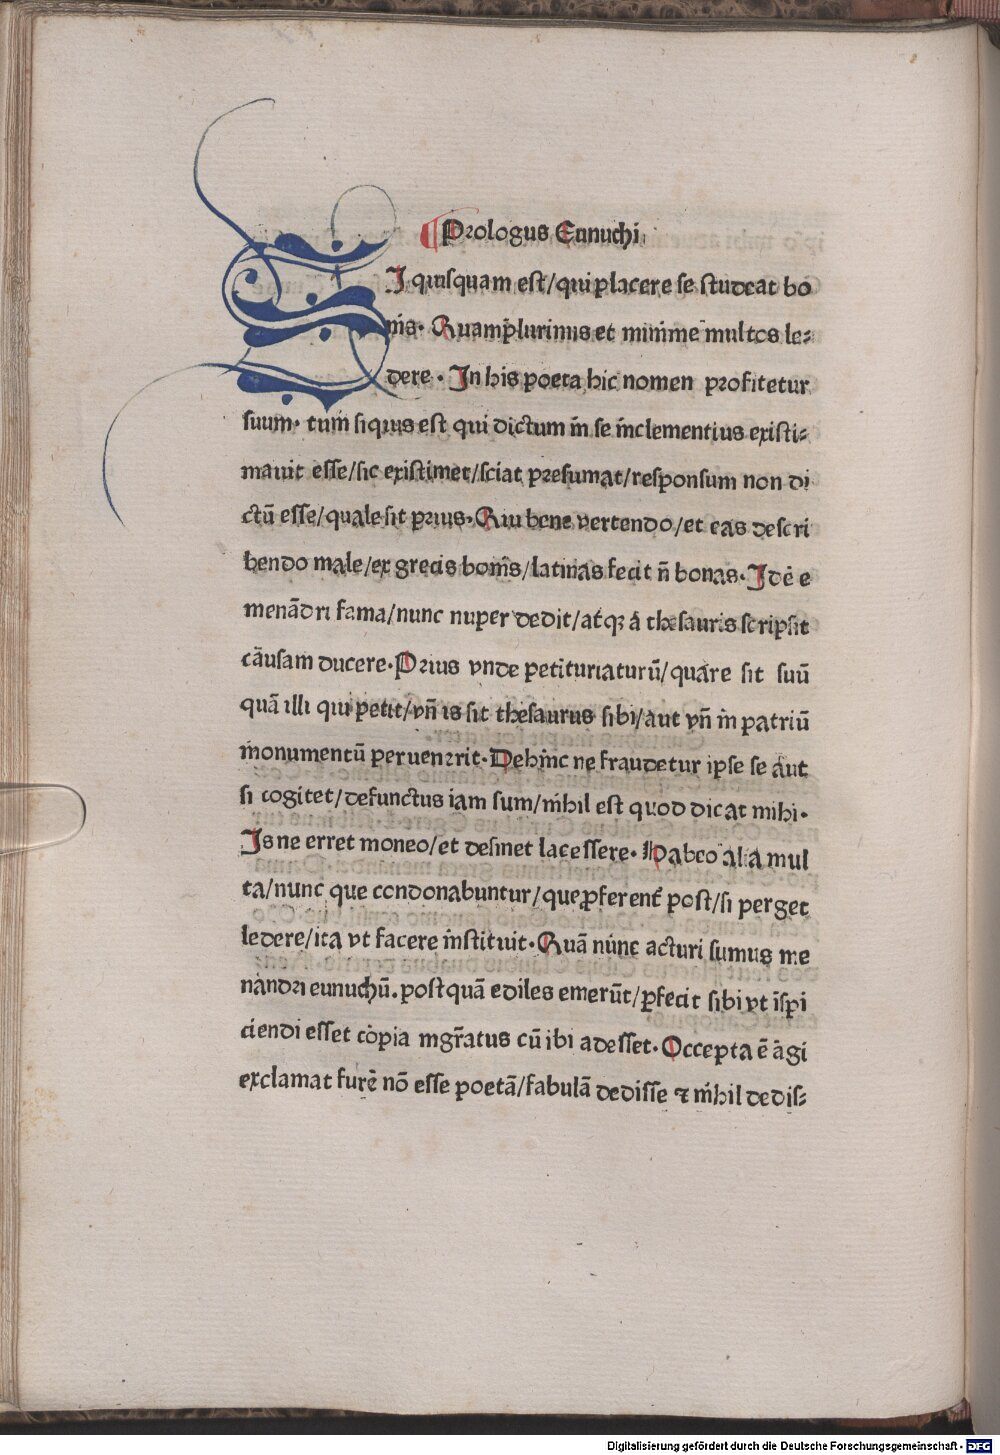 Prologus Eunuchi.
SI quisquam est/qui placere se studeat bo
nis. Quamplurimis et minime multos le⸗
dere. In his poeta hic nomen profitetur
suum. tum siquis est qui dictum in se inclementius existi⸗
mauit esse/sic existimet/sciat presumat/responsum non di
ctū esse/quale sit prius. Qui bene vertendo/et eas descri
bendo male/ex grecis bonis/latinas fecit n̄ bonas. Idē e
menādri fama/nunc nuper dedit/atqꝫ ā thesauris scripsit
cāusam ducere. Prius vnde petituriaturū/quare sit suū
quā illi qui petit/vn̄ is sit thesaurus sibi/aut vn̄ in patriū
monumentū peruenerit. Dehinc ne fraudetur ipse se aut
si cogitet/defunctus iam sum/nihil est quod dicat mihi.
Is ne erret moneo/et desinet lacessere. Habeo alia mul
ta/nunc que condonabuntur/que ꝓferent̄ post/si perget
ledere/ita vt facere instituit. Quā nunc acturi sumus me
nandri eunuchū. postquā ediles emerūt/ꝑfecit sibi vt īspi
ciendi esset copia mgr̄atus cū ibi adesset. Occepta ē agi
exclamat furē nō esse poetā/fabulā dedisse ⁊ nihil dedis⸗
Digitalisierung gefördert durch die Deutsche Forschungsgemeinschaft - DFG